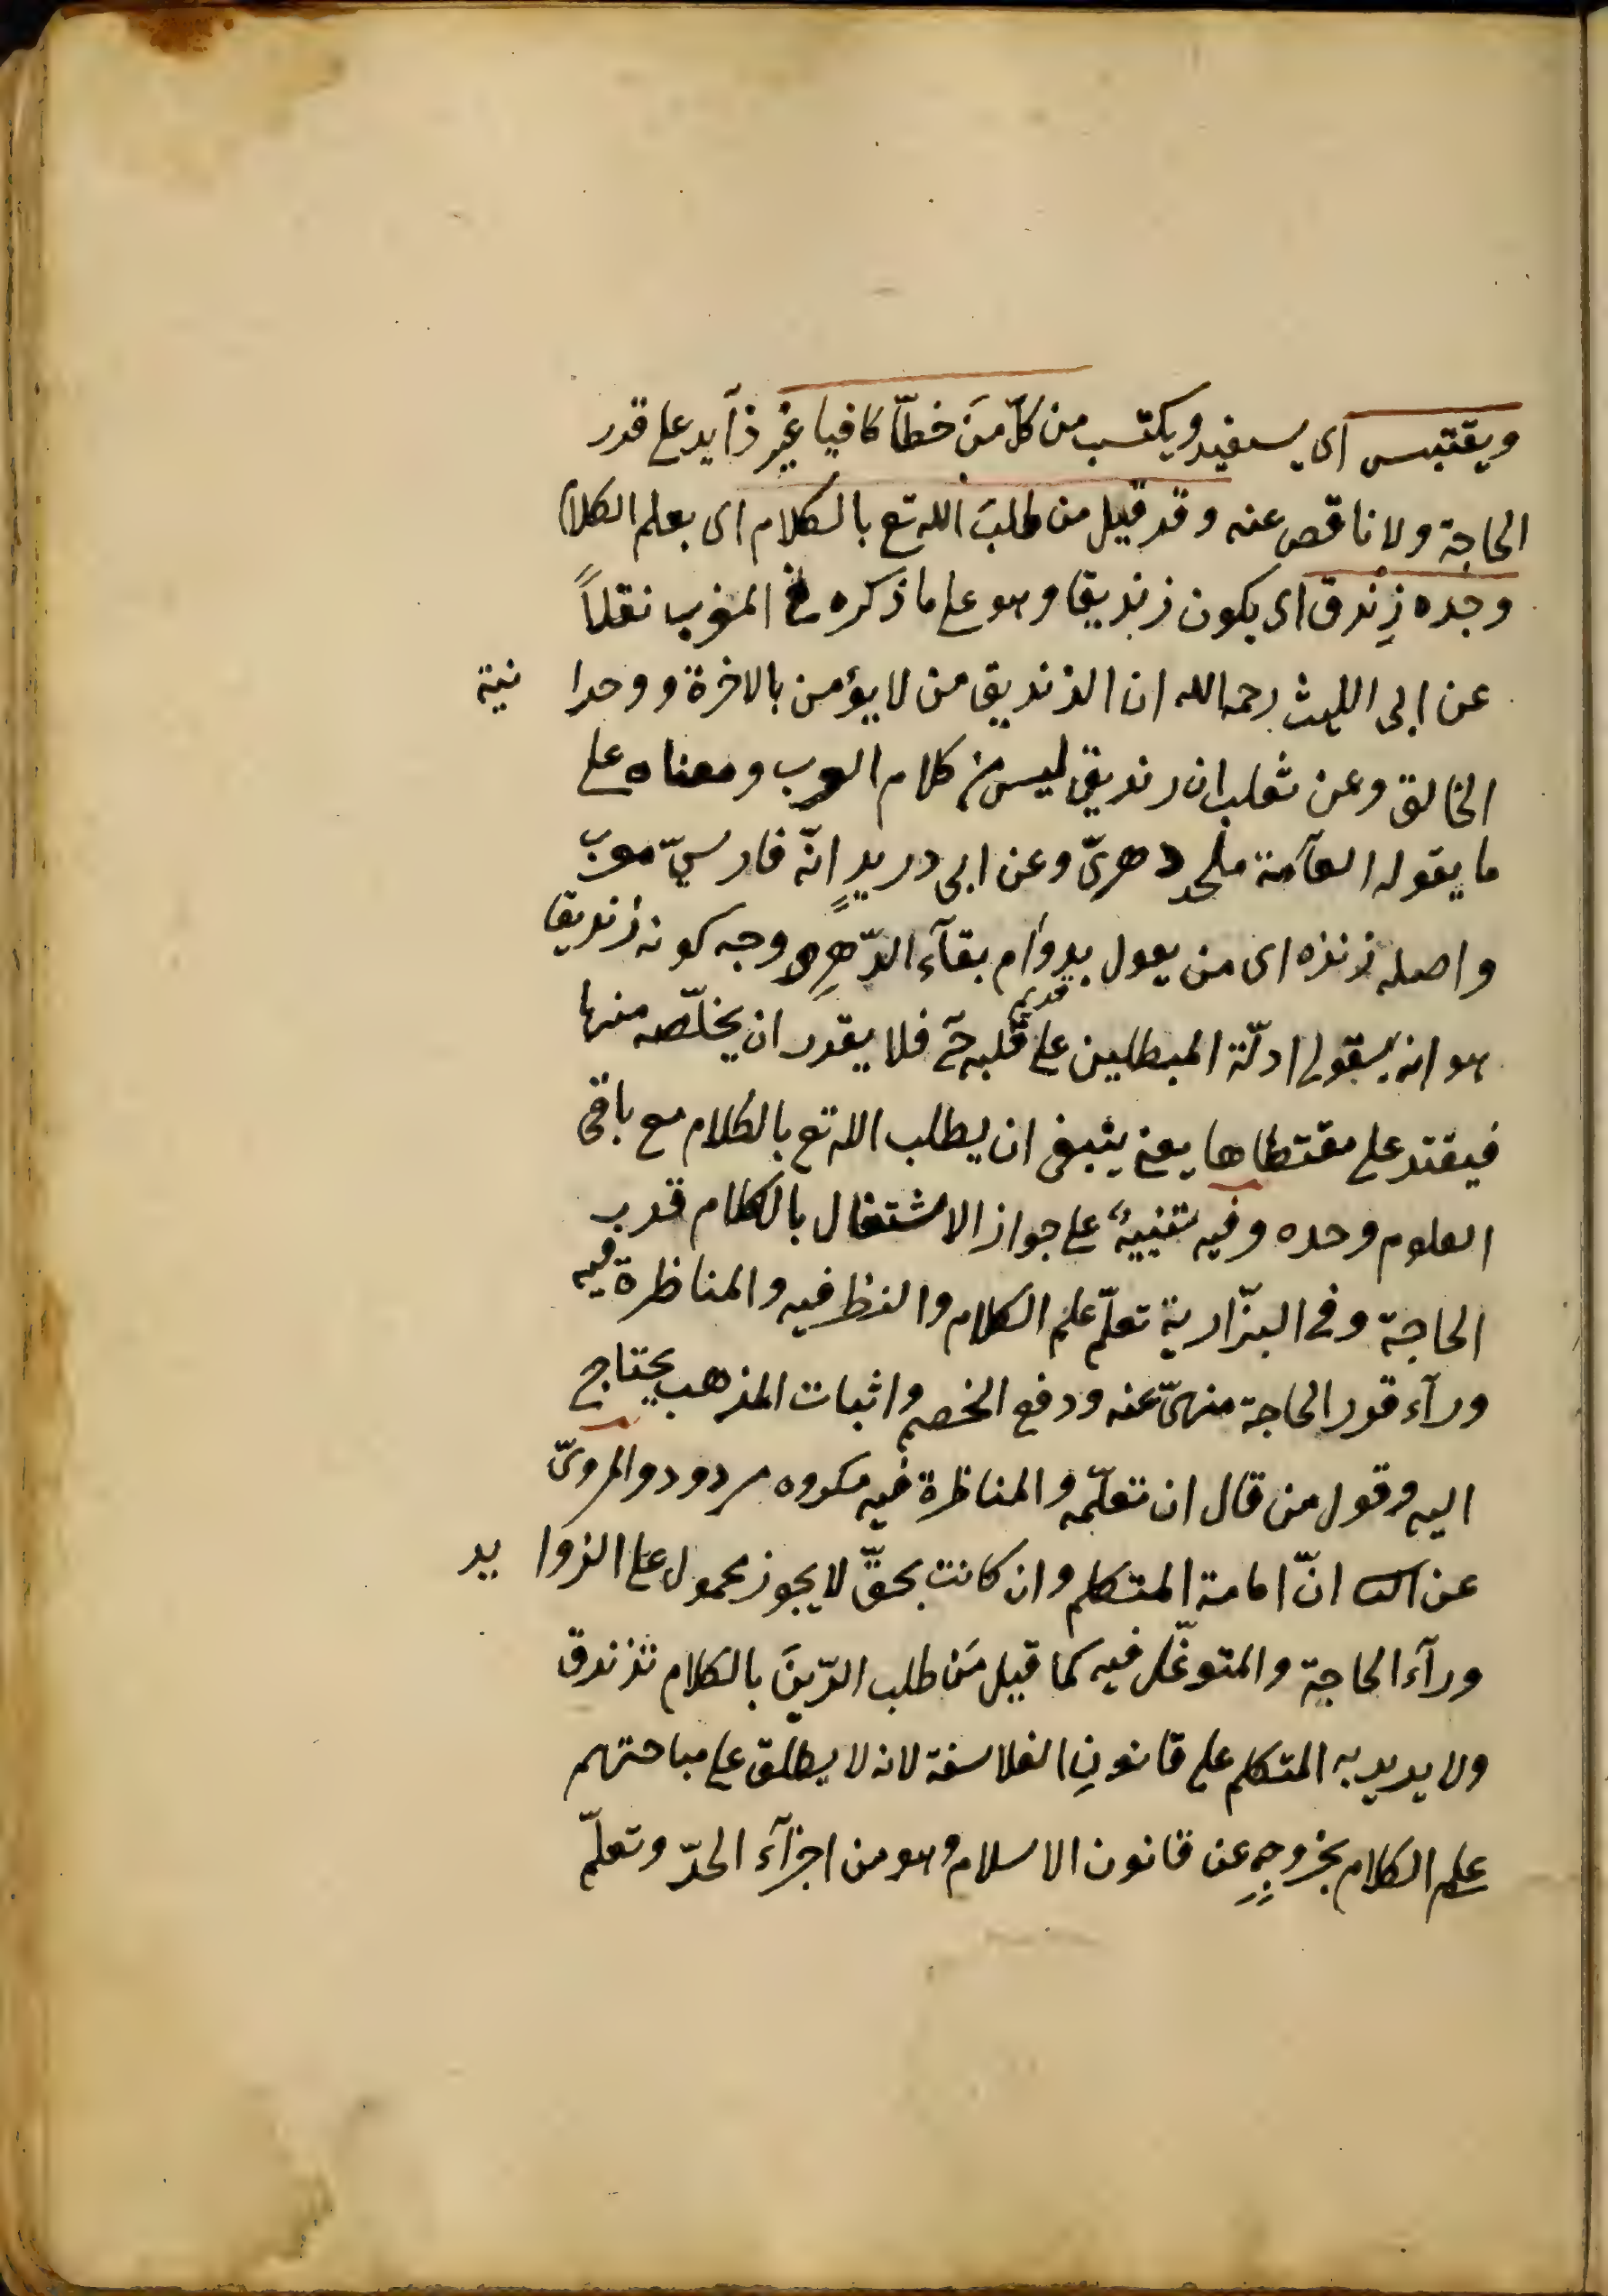 ويقتبس اى يستفيد ويكتسب من كلّ مَن خطّا كافيا غير زآيد على قدر
الحاجة ولا ناقص عنه وقد قيل من طلبَ الله تع بالكلام اى بعلم الكلام
وحده زندق اى يكون زنديقا وهو على ما ذكره فى المغرب نقلاً
عن ابى الليث رحمه الله ان الزنديق من لا يؤمن بالاخرة ووحدا نية
الخالق وعن ثعلب ان زنديق ليس من كلام العرب ومعناه على
ما يقوله العآمة ملحد دهرىّ وعن ابى دريدٍ انّه فارسىّ معرب
واصله زنده اى من يقول بدوام بقآء الدّهرِ وجه كونه زنديقا
هو انه ادلّة المبطلين على قلبه حَ فلا يقدر ان يخلّصه منها
فيعتقد على مقتضاها يعنى ينبغى ان يطلب الله تع بالكلام مع باقى
العلوم وحده وفيه تنبيهٌ على جواز الاشتغال بالكلام قدر
الحاجة وفى البزّازية تعلّم علم الكلام والنظر فيه والمناظرة فيه
ورآء قدر الحاجة منهىّ عنه ودفع الخصم واثبات المذهب يحتاج
اليه وقول من قال ان تعلّمه والمناظرة فيه مكروه مردود والمروىّ
عن انّ امامة المتكلم وان كانت بحقّ لا يجوز محمول على الزوا يد
ورآء الحاجة والمتوغّل فيه كما قيل مَن طلب الدّينَ بالكلام تزندق
ولا يريد به المتكلم على قانونِ الفلاسفة لانه لا يطلق على مباحثهم
علم الكلام بخروجهِ عن قانون الاسلام وهو من اجزآء الحدّ وتعلّم